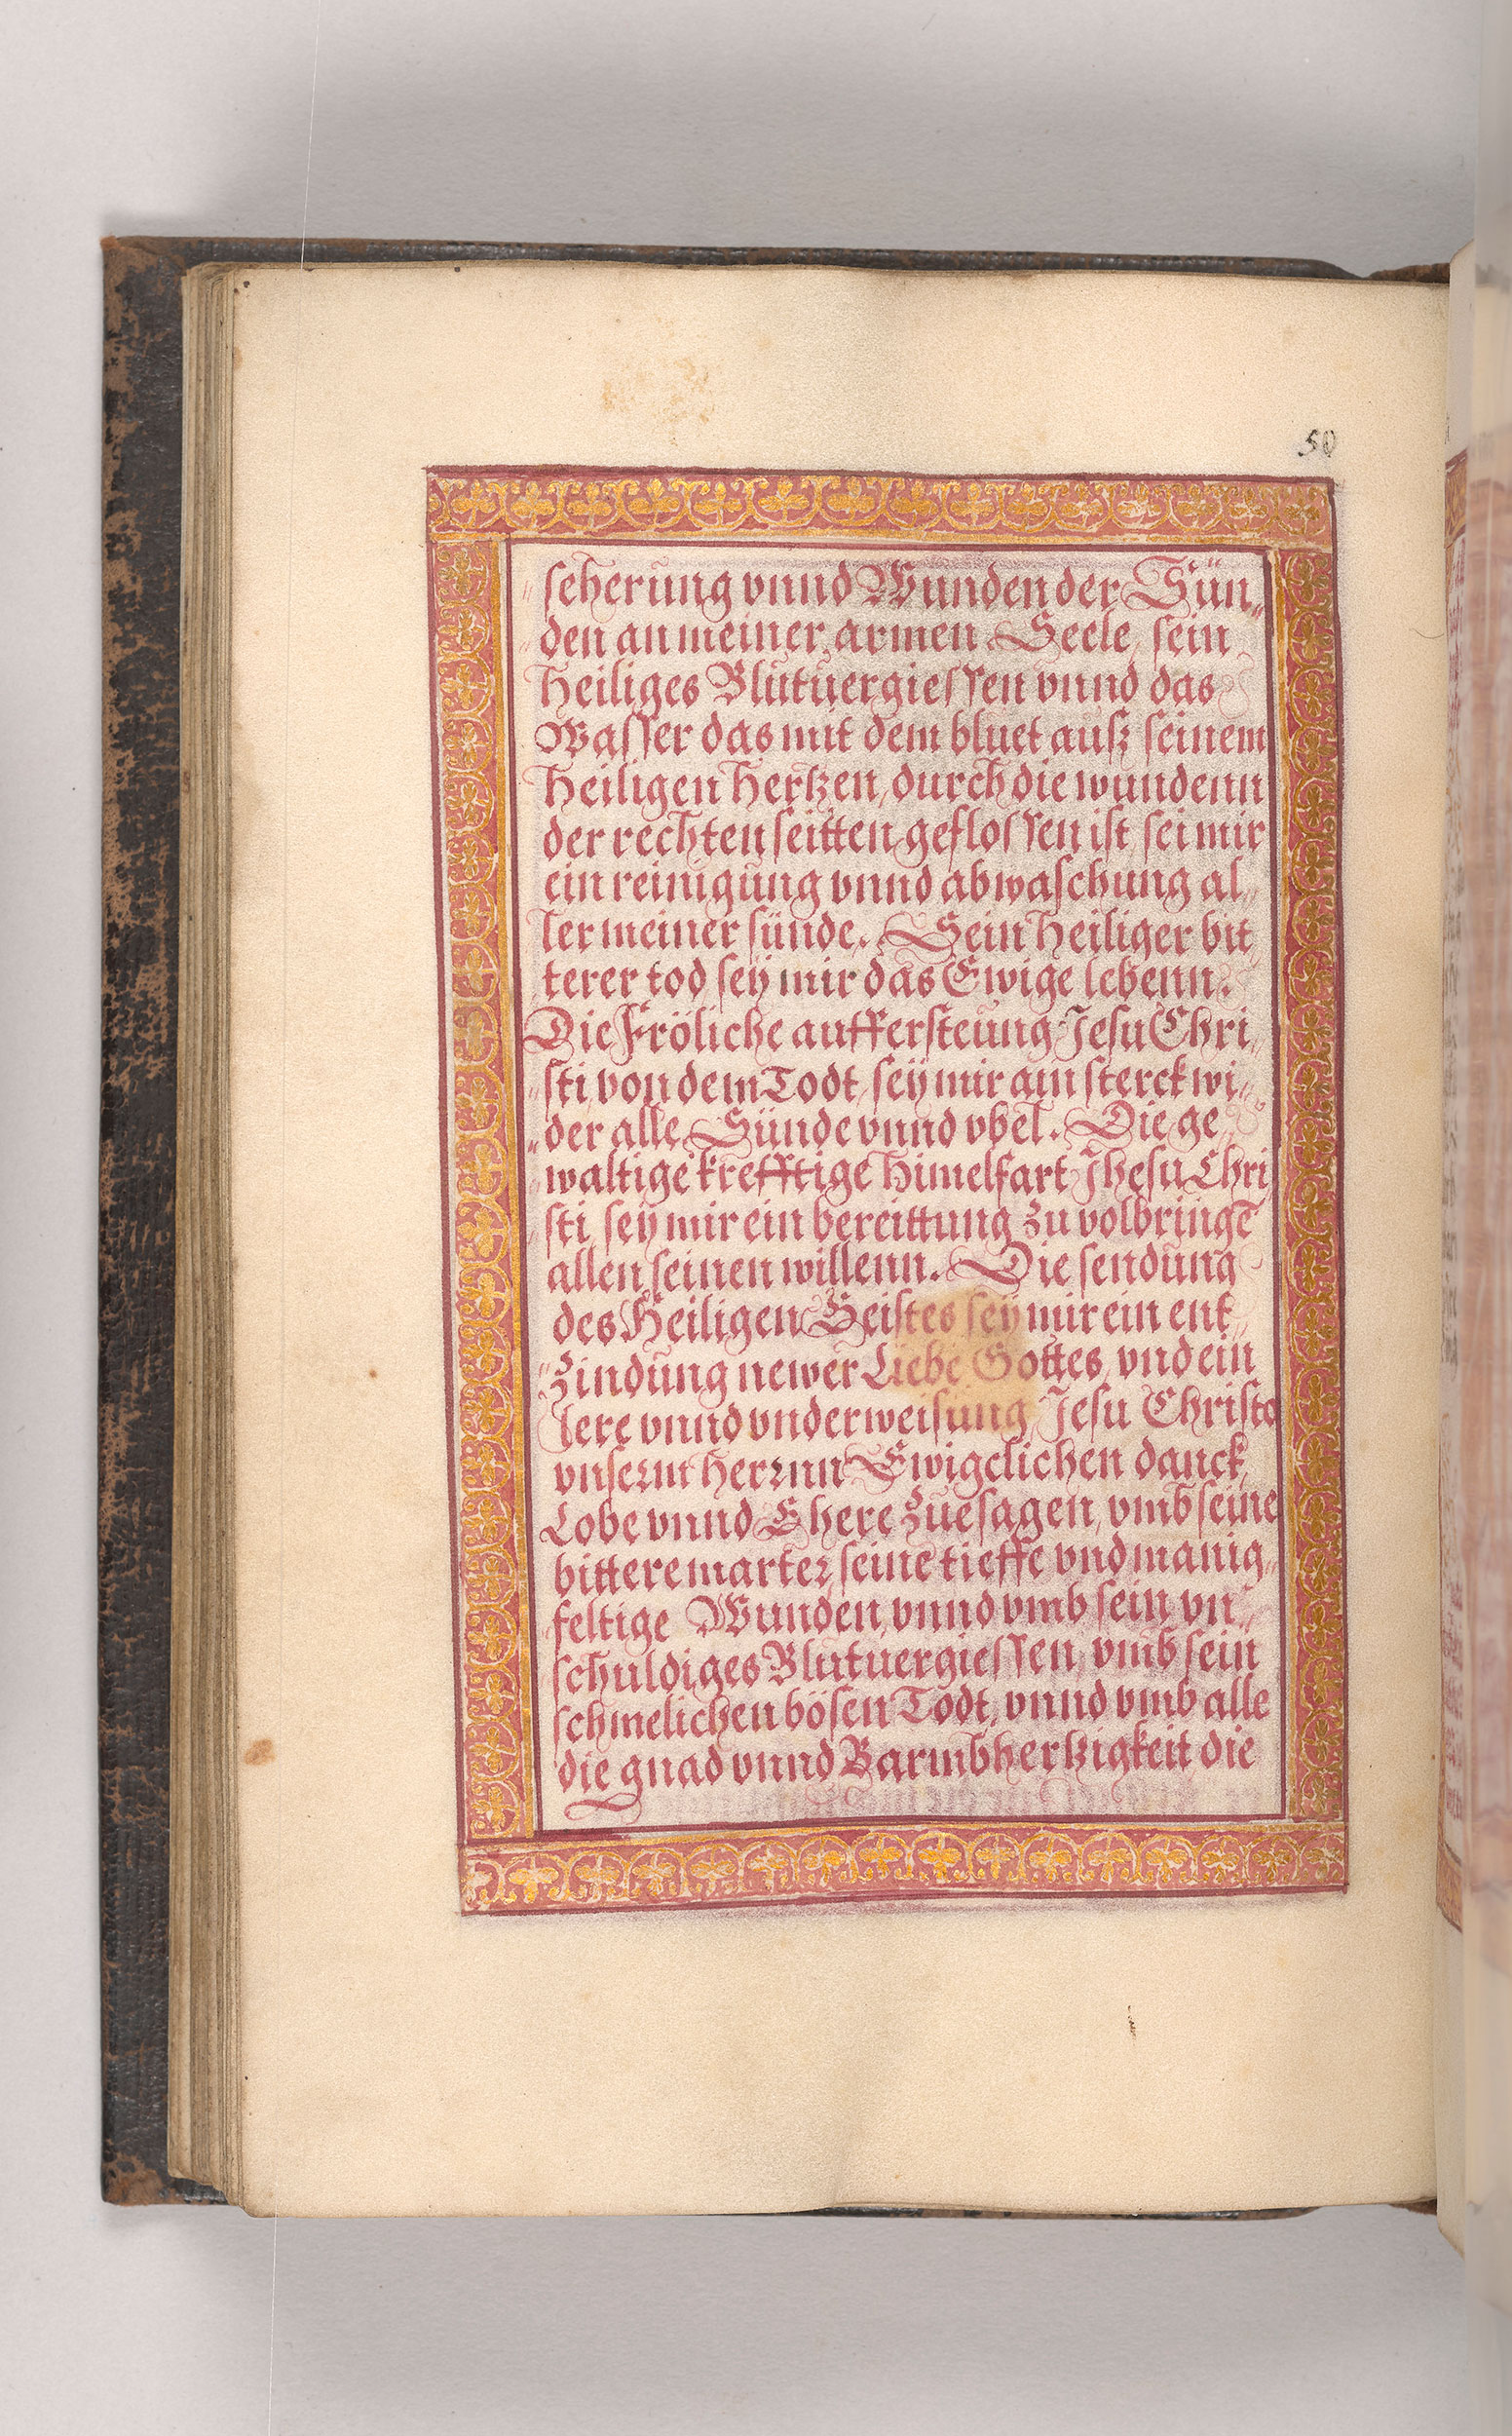 50
seherung vnnd Wunden der Sün„
den an meiner armen Seele, sein
heiliges Blutuergiessen vnnd das
Wasser das mit dem bluet ausz seinem
heiligen hertzen, durch die wundenn
der rechten seitten geflossen ist, sei mir
ein reinigung vnnd abwaschung al„
ler meiner sünde. Sein heiliger bit„
terer tod, seÿ mir das Ewige lebenn.
Die fröliche auffersteung Jesu Chri„
sti von dem Todt, seÿ mir ain sterck wi„
der alle Sünde vnnd vbel. Die ge„
waltige krefftige himelfart Jhesu Chri
sti, sey mir ein bereittung zu volbringē
allen seinen willenn. Die sendung
des Heiligen Geistes seÿ mir ein ent„
zindung newer Liebe Gottes, vnd ein
lere vnnd vnderweisung, Jesu Christo
vnserm herrnn Ewigclichen danck,
Lobe vnnd Ehere zuesagen, vmb seine
bittere marter, seine tieffe vnd manig„
feltige Wunden, vnnd vmb sein vn„
schuldiges Blutuergiessen, vmb sein
schmelichen bösen Todt, vnnd vmb alle
die gnad vnnd Barmbhertzigkeit die